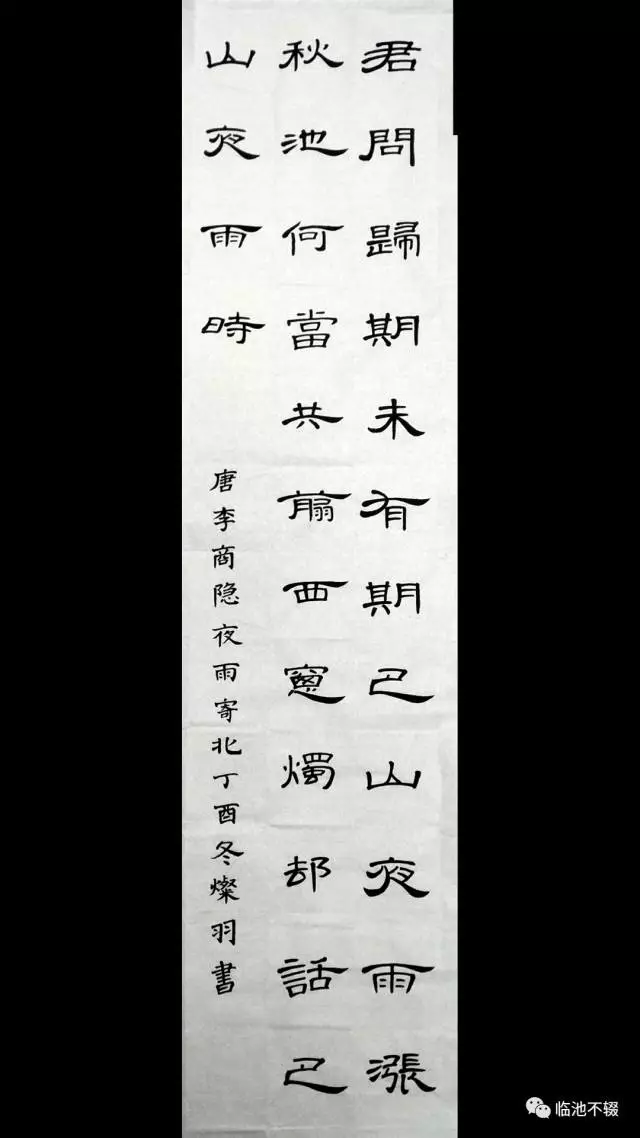 君問歸期未有期巴山夜雨漲
秋池何當共剪西窻燭却話巴
山夜雨時
唐李商隐夜雨寄北丁酉冬燦羽書
临池不辍